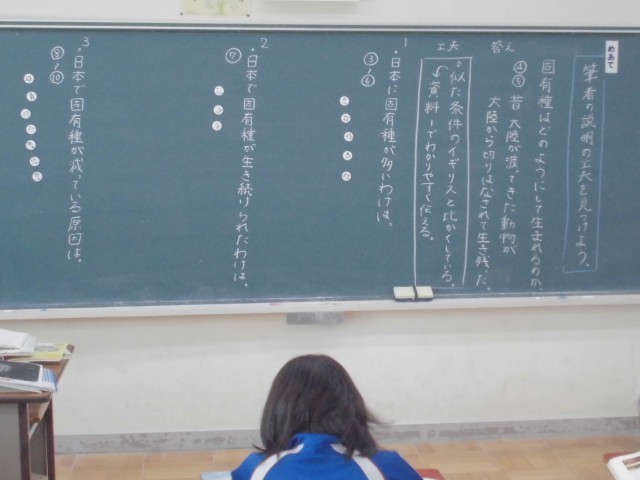 めあて
筆者の説明の工夫を見つけよう。
固有種はどのようにして生まれるのか。
④⑤
昔、大陸が渡ってきた動物が
大陸から切りはなされて生き残った。
答え
工夫
。似た条件のイギリスと比かくしている。
資料1でわかりやすく伝える。
1
・日本に固有種が多いわけは。
③
⑥
2
・日本で固有種が生き続けられたわけは。
⑦
3
・日本で固有種が減っている原因は。
⑧
⑩